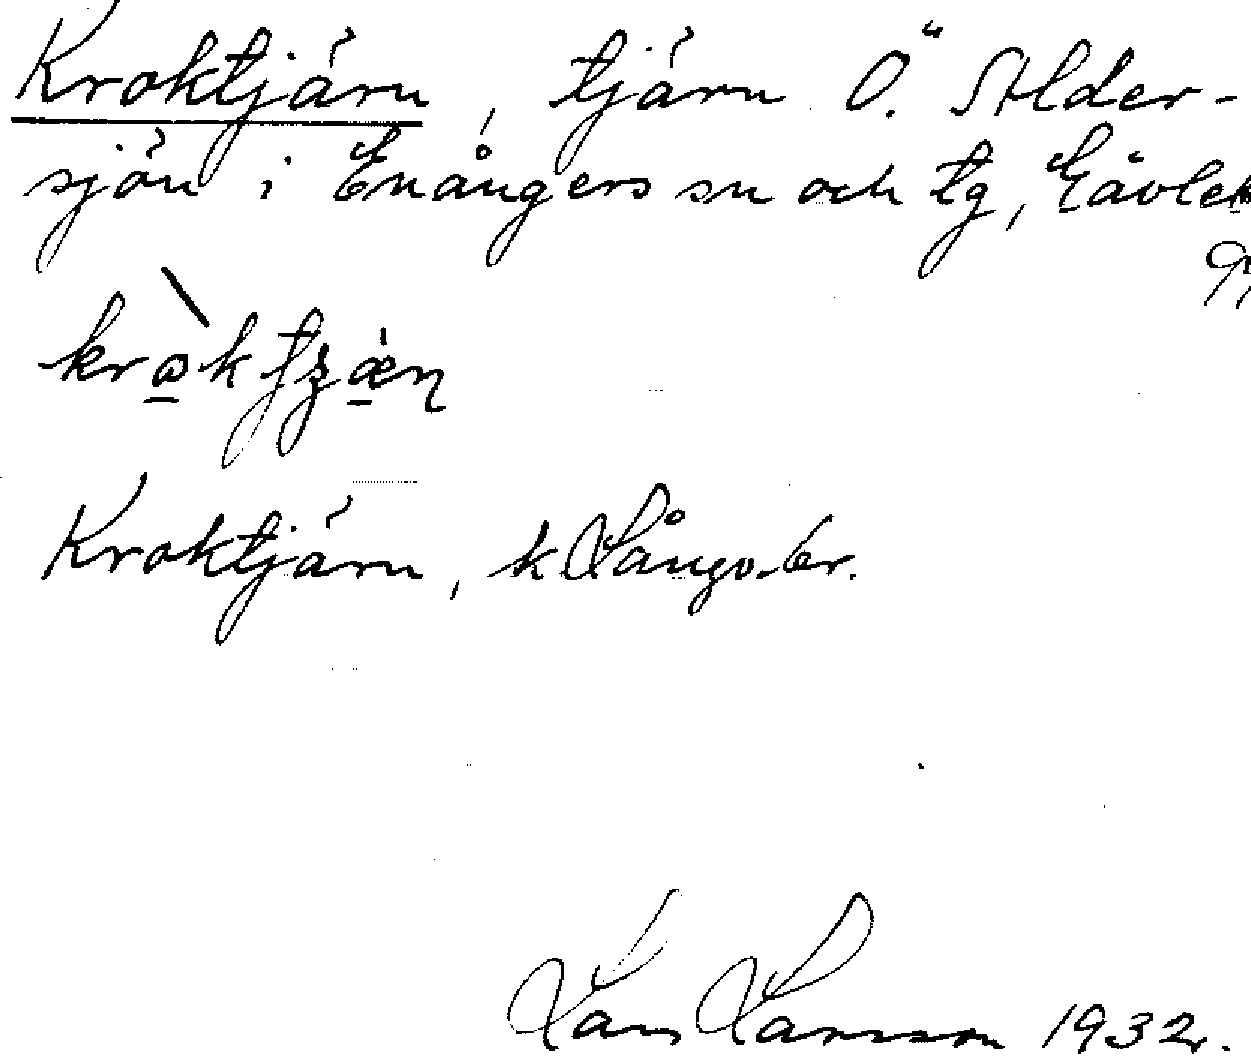 Kroktjärn, tjärn Ö. Alder-
sjön i Enångers sn och tg, Gävleb
Kroktjärn, k Långv.br.
Lars Larsson 1932.